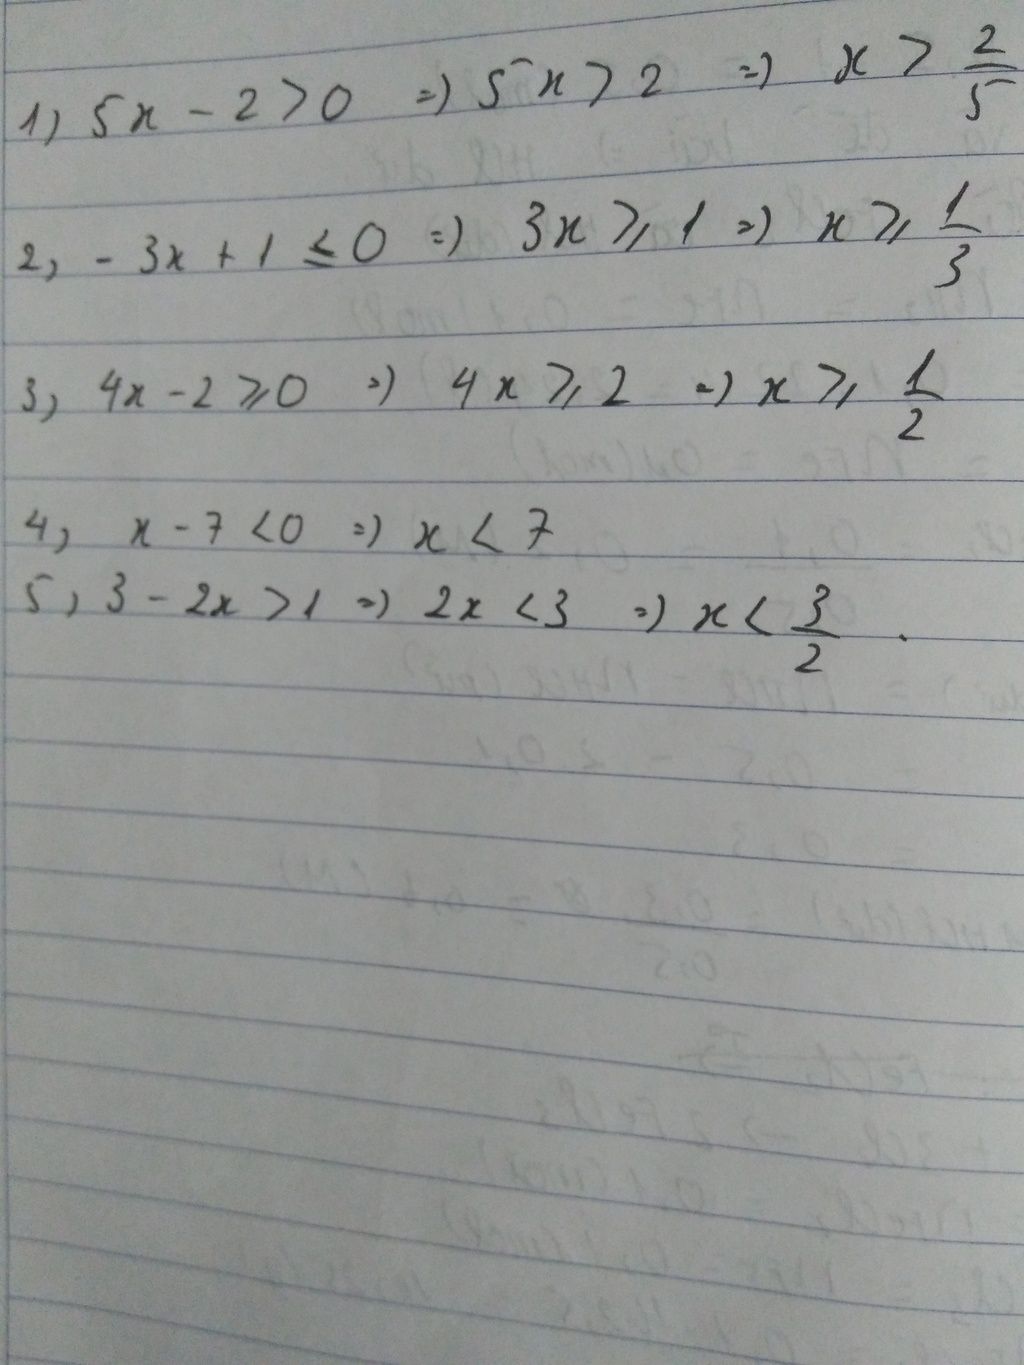 1) 5x - 2 > 0 => 5x > 2 => x > 2/5
2, - 3x + 1 ≤ 0 => 3x ⩾ 1 => x ⩾ 1/3
3, 4x - 2 ⩾ 0 => 4x ⩾ 2 => x ⩾ 1/2
4, x - 7 < 0 => x < 7
5, 3 - 2x > 1 => 2x < 3 => x < 3/2 .